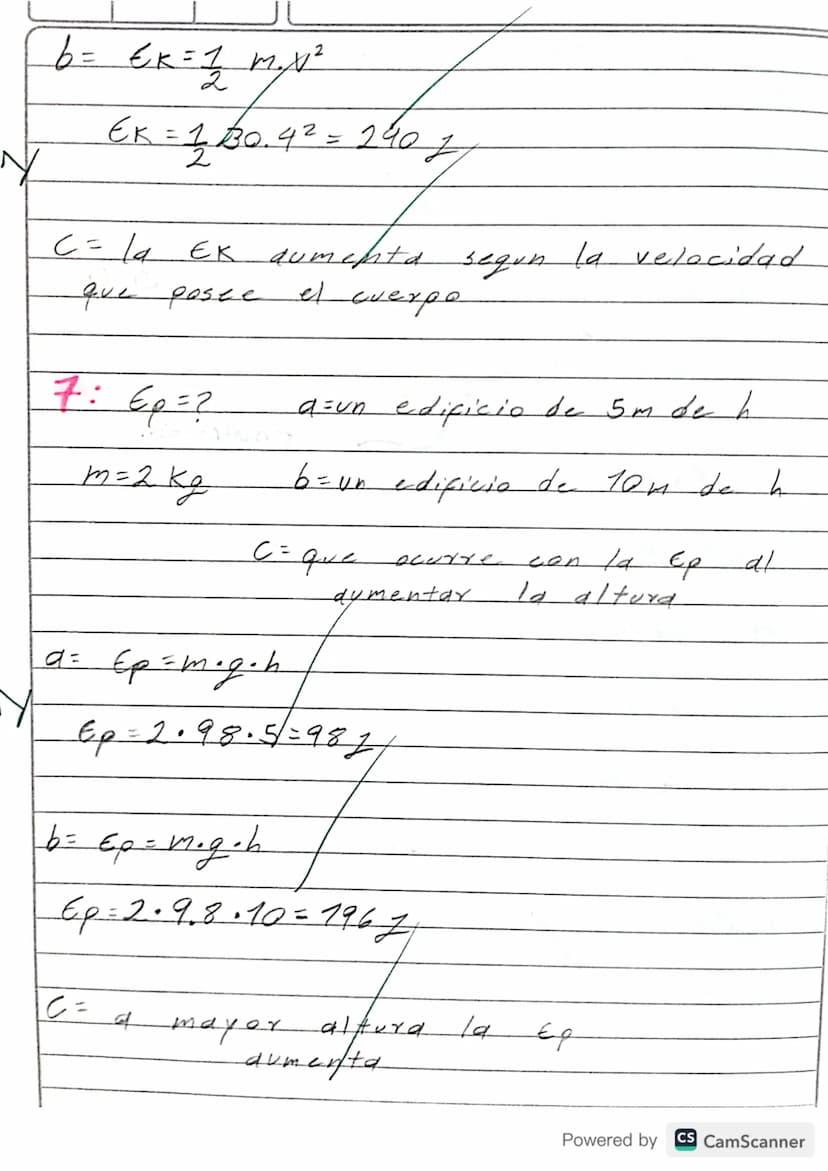 b= Ek = 1/2 m.v²
Ek = 1/2 30.4² = 240 J
c= la Ek aumenta segun la velocidad
que posee el cuerpo
7: Ep=? a=un edificio de 5m de h
m=2 kg b=un edificio de 10m de h
c= que ocurre con la Ep al
aumentar la altura
a= Ep=m.g.h
Ep=2.98.5=98 J
b= Ep=m.g.h
Ep=2.9.8.10=196 J
c= a mayor altura la Ep
aumenta
Powered by CS CamScanner